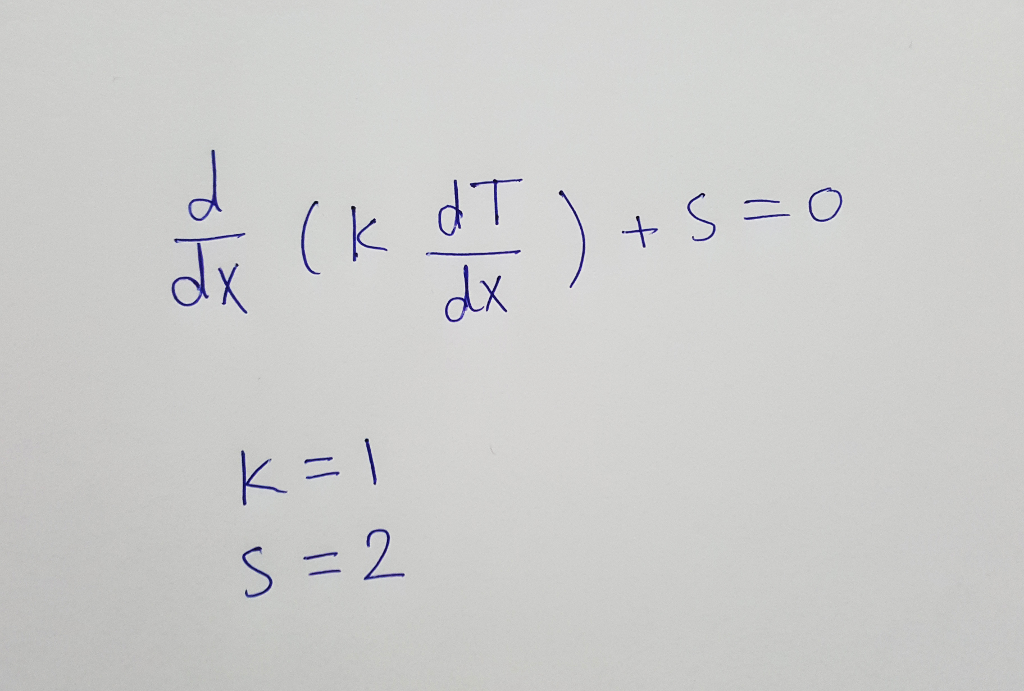 d/dx (k dT/dx) + S = 0
k = 1
S = 2